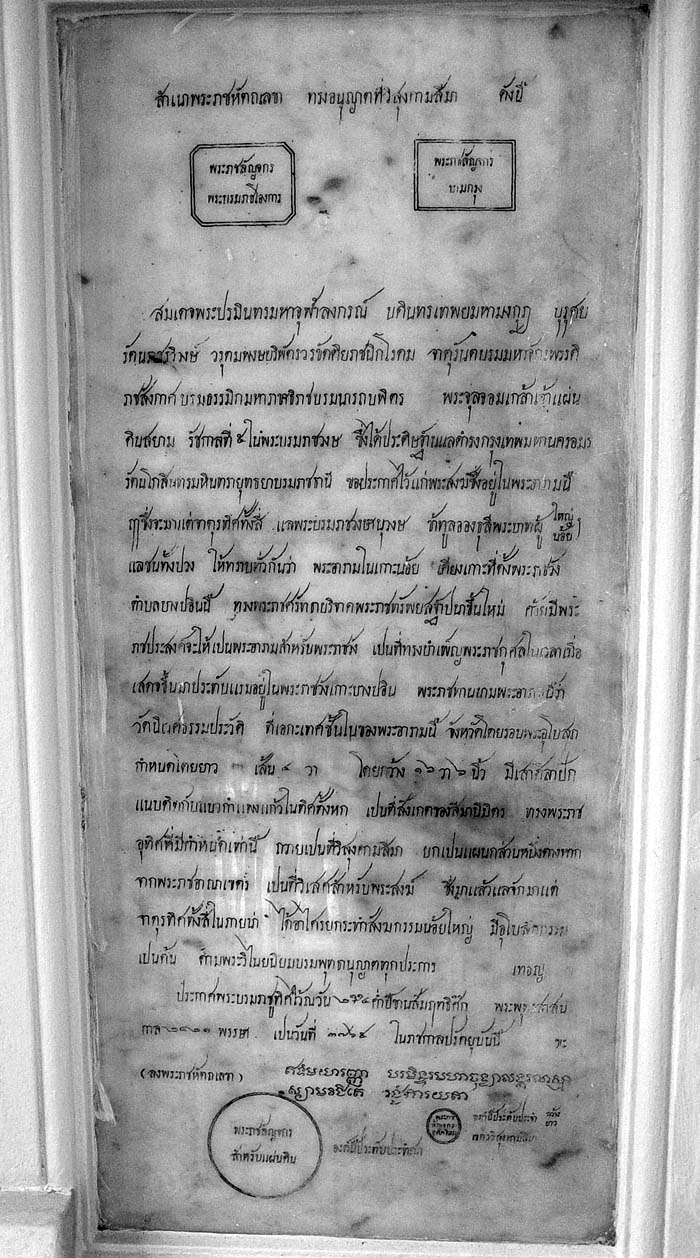 สำเนาพระราชหัตถเลขา ทรงอนุญาตที่วิสุงคามสีมา ดังนี้
พระราชลัญจกร
พระบรมราชโองการ
พระราชลัญจกร
นามกรุง
สมเดจพระปรมินทรมหาจุฬาลงกรณ์ บดินทรเทพยมหามงกุฎ บุรุศย
รัตนราชรวิวงษ์ วรุตมพงษบริพัตร วรขัติยราชนิกโรดม จาตุรันตบรมมหาจักรพรรดิ
ราชสังกาศ บรมธรรมิกมหาราชาธิราช บรมนารถบพิตร พระจุลจอมเกล้าเจ้าแผ่น
ดินสยาม รัชกาลที่ ๕ ในพระบรมราชวงษ ซึ่งได้ประดิษฐานแลดำรงกรุงเทพมหานครอมร
รัตนโกสินทรมหินทรายุทธยาบรมราชธานี ขอประกาศไว้แก่พระสงฆ์ซึ่งอยู่ในพระอารามนี้
ฤๅซึ่งจะมาแต่จาตุรทิศทั้งสี่ แลพระบรมราชวงษานุวงษ ข้าทูลอองธุลีพระบาทผู้ใหญ่ น้อย
แลชนทั้งปวง ให้ทราบทั่วกันว่า พระอารามในเกาะน้อย เคียงเกาะที่ตั้งพระราชวัง
ตำบลบางปอินนี้ ทรงพระราชศรัทธาบริจาคพระราชทรัพยสฐาปนาขึ้นใหม่ ด้วยมีพระ
ราชประสงค์จะให้เปนพระอารามสำหรับพระราชวัง เปนที่ทรงบำเพ็ญพระราชกุศลในเวลาเมื่อ
เสดจขึ้นมาประทับแรมอยู่ในพระราชวังเกาะบางปอิน พระราชทานนามพระอารามนี้ว่า
วัดนิเวศธรรมประวัติ ที่เอกะเทศชั้นในของพระอารามนี้ จังหวัดโดยรอบพระอุโบสถ
กำหนดโดยยาว เส้น ๔ วา โดยกว้าง ๑๖ วา ๖ นิ้ว มีเสาศิลาปัก
แนบติดกับแนวกำแพงแก้วในทิศทั้งหก เปนที่สังเกตของสีมานิมิตร ทรงพระราช
อุทิศที่มีกำหนดเท่านี้ ถวายเปนที่วิสุงคามสีมา ยกเปนแผนกส่วนหนึ่งต่างหาก
จากพระราชอาณาเขตร เปนที่วิเสศสำหรับพระสงฆ์ ซึ่งมาแล้วแลจักมาแต่
จาตุรทิศทั้งสี่ในภายน่า ได้อาไศรยกระทำสังฆกรรมน้อยใหญ่ มีอุโบสถกรรม
เปนต้น ตามพระวิไนยนิยมบรมพุทธานุญาตทุกประการ เทอญ
ประกาศพระบรมราชูทิศไว้ณวัน ค่ำปีขานสัมฤทธิศ๊ก พระพุทธสาสน
กาล ๒๔๒๑ พรรษา เปนวันที่ ในราชกาลปรัตยุบันนี้ ฯะ
(ลงพระราชหัตถเลขา)
พระราชลัญจกร
สำหรับแผ่นดิน
องค์นี้ประทับประจำ
องค์นี้ประทับประจำ กว้าง ยาว